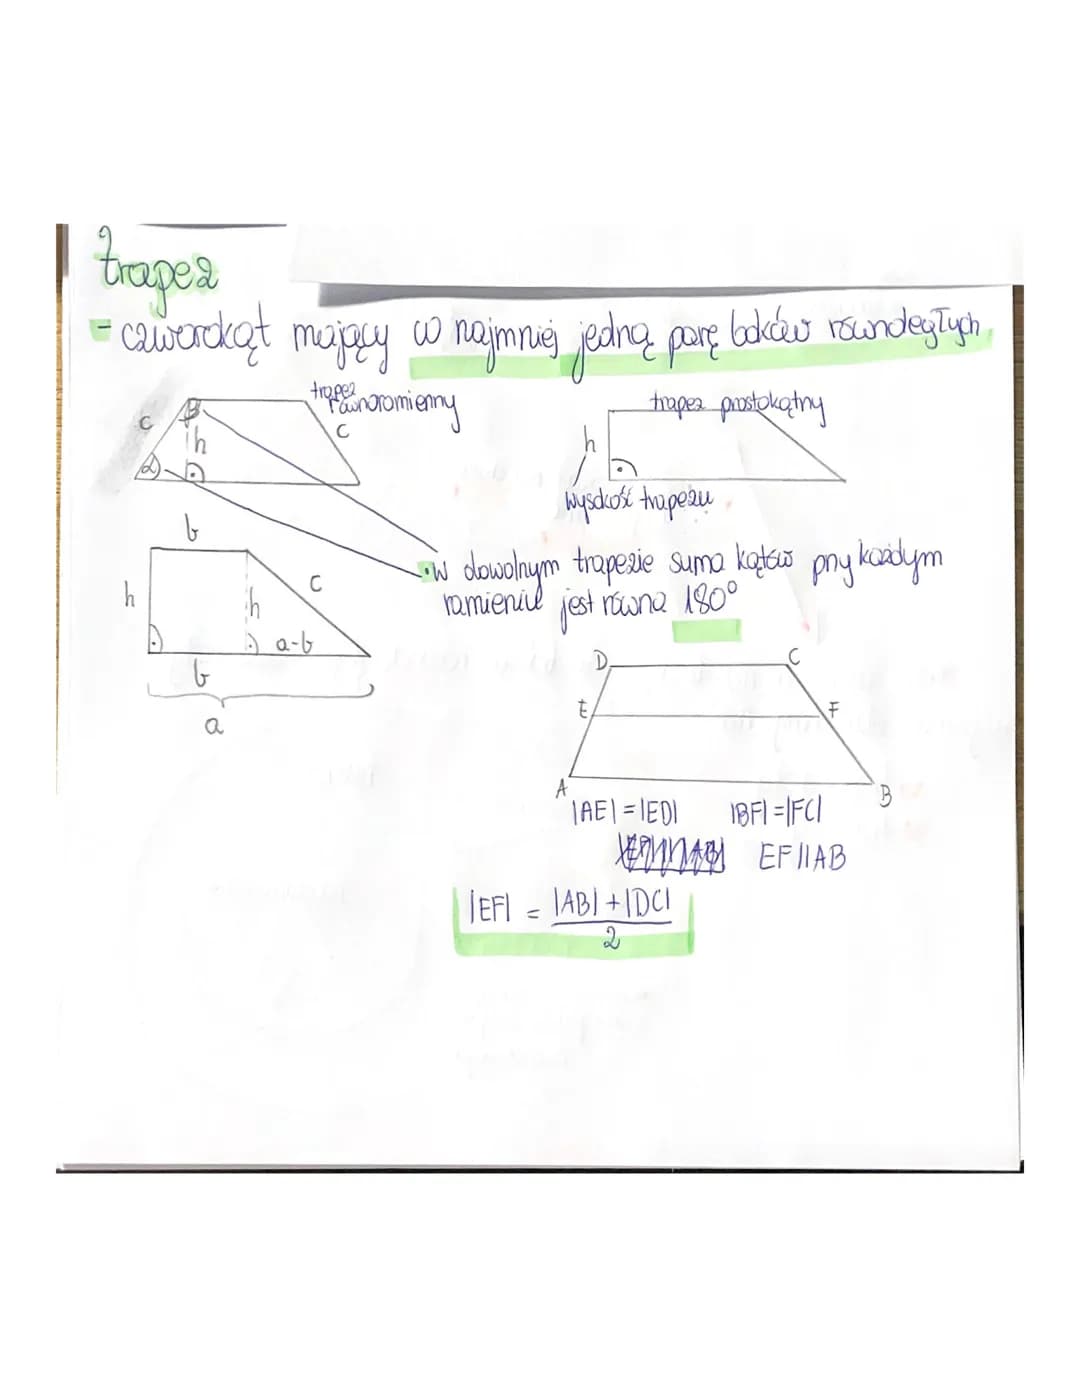 trapez
- czworokąt mający co najmniej jedną parę boków równoległych
trapez
równoramienny
trapez prostokątny
c
β
h
c
α
h
wysokość trapezu
b
h
h
c
a-b
b
a
• W dowolnym trapezie suma kątów przy każdym
ramieniu jest równa 180°
D
C
E
F
A
B
|AE| = |ED| |BF| = |FC|
EF || AB
|EF| = |AB| + |DC|
2